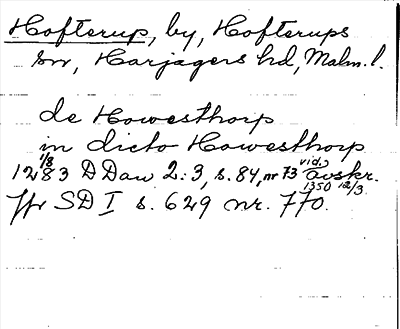 Hofterup, by, Hofterups
sn, Harjagers hd, Malm. l.
de Howesthorp
in dicto Howesthorp
1/8
1283 DDan 2:3, s. 84, nr 73 vid. avskr.
1350 12/3.
Jfr SD I s. 629 nr. 770.